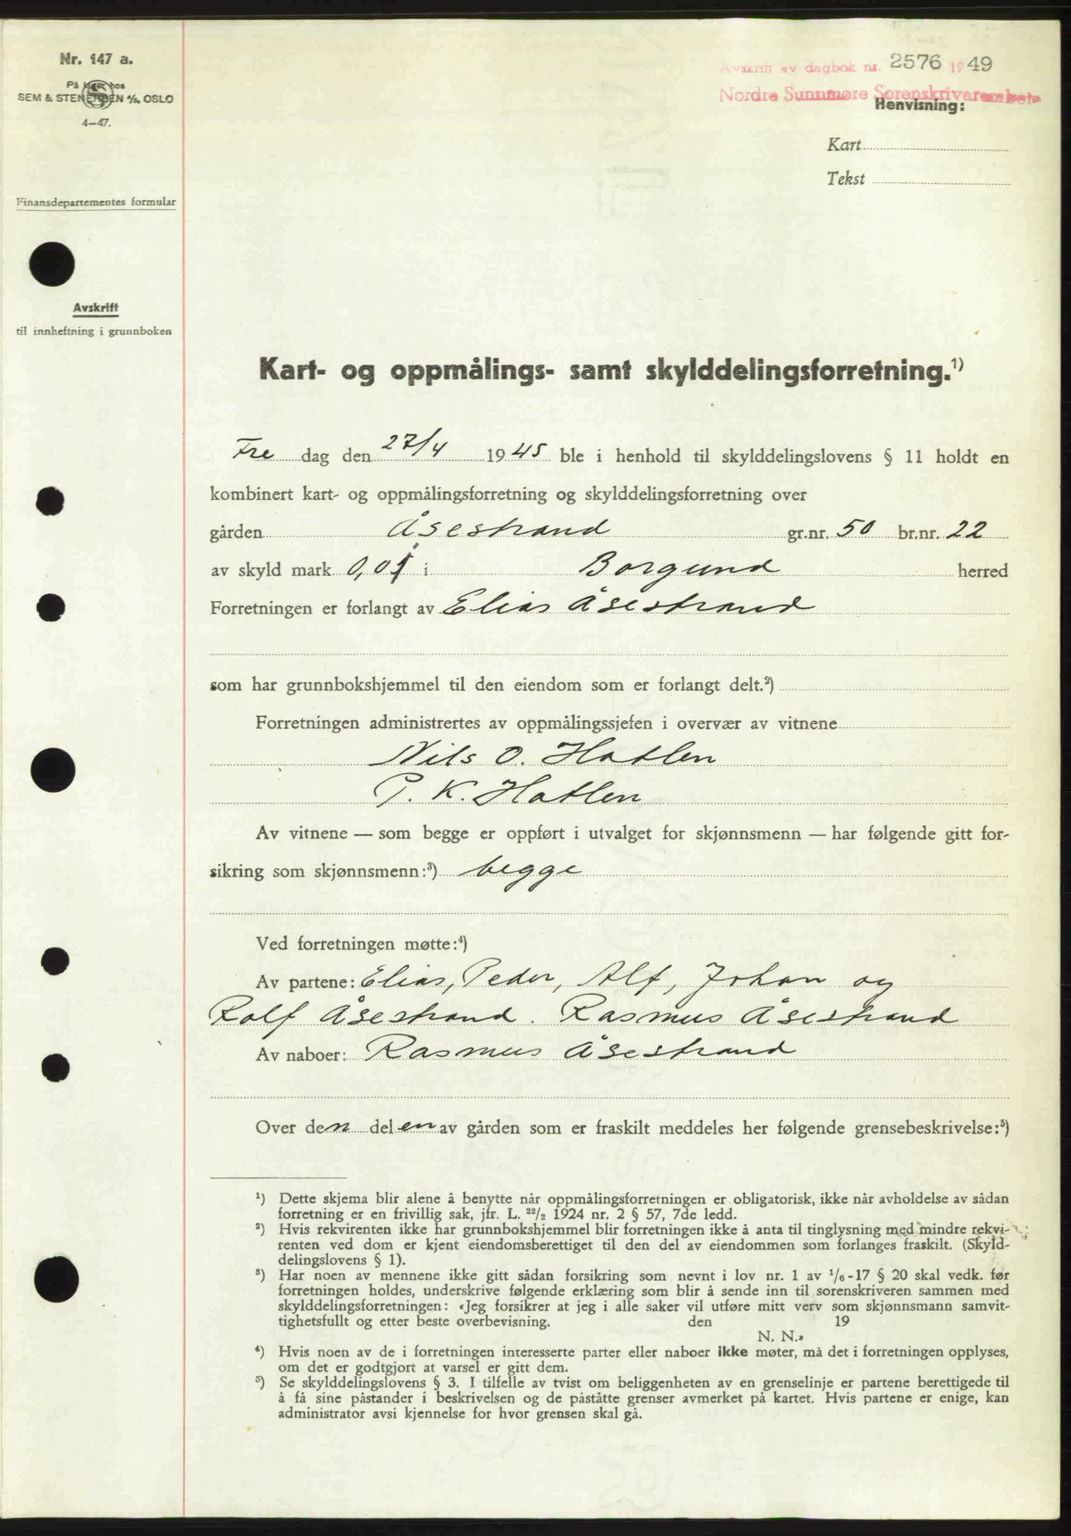 Nr. 147 a.
På lager hos
SEM & STENERSEN A/S, OSLO
4—47.
Finansdepartementes formular
Avskrift
til innheftning i grunnboken
Avskrift av dagbok nr. 2576 1949
Nordre Sunnmøre Sorenskriverembete
Henvisning:
Kart
Tekst
Kart- og oppmålings- samt skylddelingsforretning.¹)
Fre dag den 27/4 1945 ble i henhold til skylddelingslovens § 11 holdt en
kombinert kart- og oppmålingsforretning og skylddelingsforretning over
gården Åsestrand gr.nr. 50 br.nr. 22
av skyld mark 0,01 i Borgund herred
Forretningen er forlangt av Elias Åsestrand
som har grunnbokshjemmel til den eiendom som er forlangt delt.²)
Forretningen administrertes av oppmålingssjefen i overvær av vitnene
Nils O. Hatlen
P. K. Hatlen
Av vitnene — som begge er oppført i utvalget for skjønnsmenn — har følgende gitt for-
sikring som skjønnsmenn:³) begge
Ved forretningen møtte:⁴)
Av partene: Elias, Peder, Alf, Johan og
Rolf Åsestrand. Rasmus Åsestrand
Av naboer: Rasmus Åsestrand
Over den delen av gården som er fraskilt meddeles her følgende grensebeskrivelse:⁵)
¹) Dette skjema blir alene å benytte når oppmålingsforretningen er obligatorisk, ikke når avholdelse av sådan
forretning er en frivillig sak, jfr. L. ²²/₂ 1924 nr. 2 § 57, 7de ledd.
²) Hvis rekvirenten ikke har grunnbokshjemmel blir forretningen ikke å anta til tinglysning med mindre rekvi-
renten ved dom er kjent eiendomsberettiget til den del av eiendommen som forlanges fraskilt. (Skyld-
delingslovens § 1).
³) Har noen av mennene ikke gitt sådan forsikring som nevnt i lov nr. 1 av ¹/₆-17 § 20 skal vedk. før
forretningen holdes, underskrive følgende erklæring som blir å sende inn til sorenskriveren sammen med
skylddelingsforretningen: «Jeg forsikrer at jeg i alle saker vil utføre mitt verv som skjønnsmann samvit-
tighetsfullt og etter beste overbevisning. den 19
N. N.»
⁴) Hvis noen av de i forretningen interesserte parter eller naboer ikke møter, må det i forretningen opplyses,
om det er godtgjort at varsel er gitt dem.
⁵) Se skylddelingslovens § 3. I tilfelle av tvist om beliggenheten av en grenselinje er partene berettigede til
å få sine påstander i beskrivelsen og de påståtte grenser avmerket på kartet. Hvis partene er enige, kan
administrator avsi kjennelse for hvor grensen skal gå.